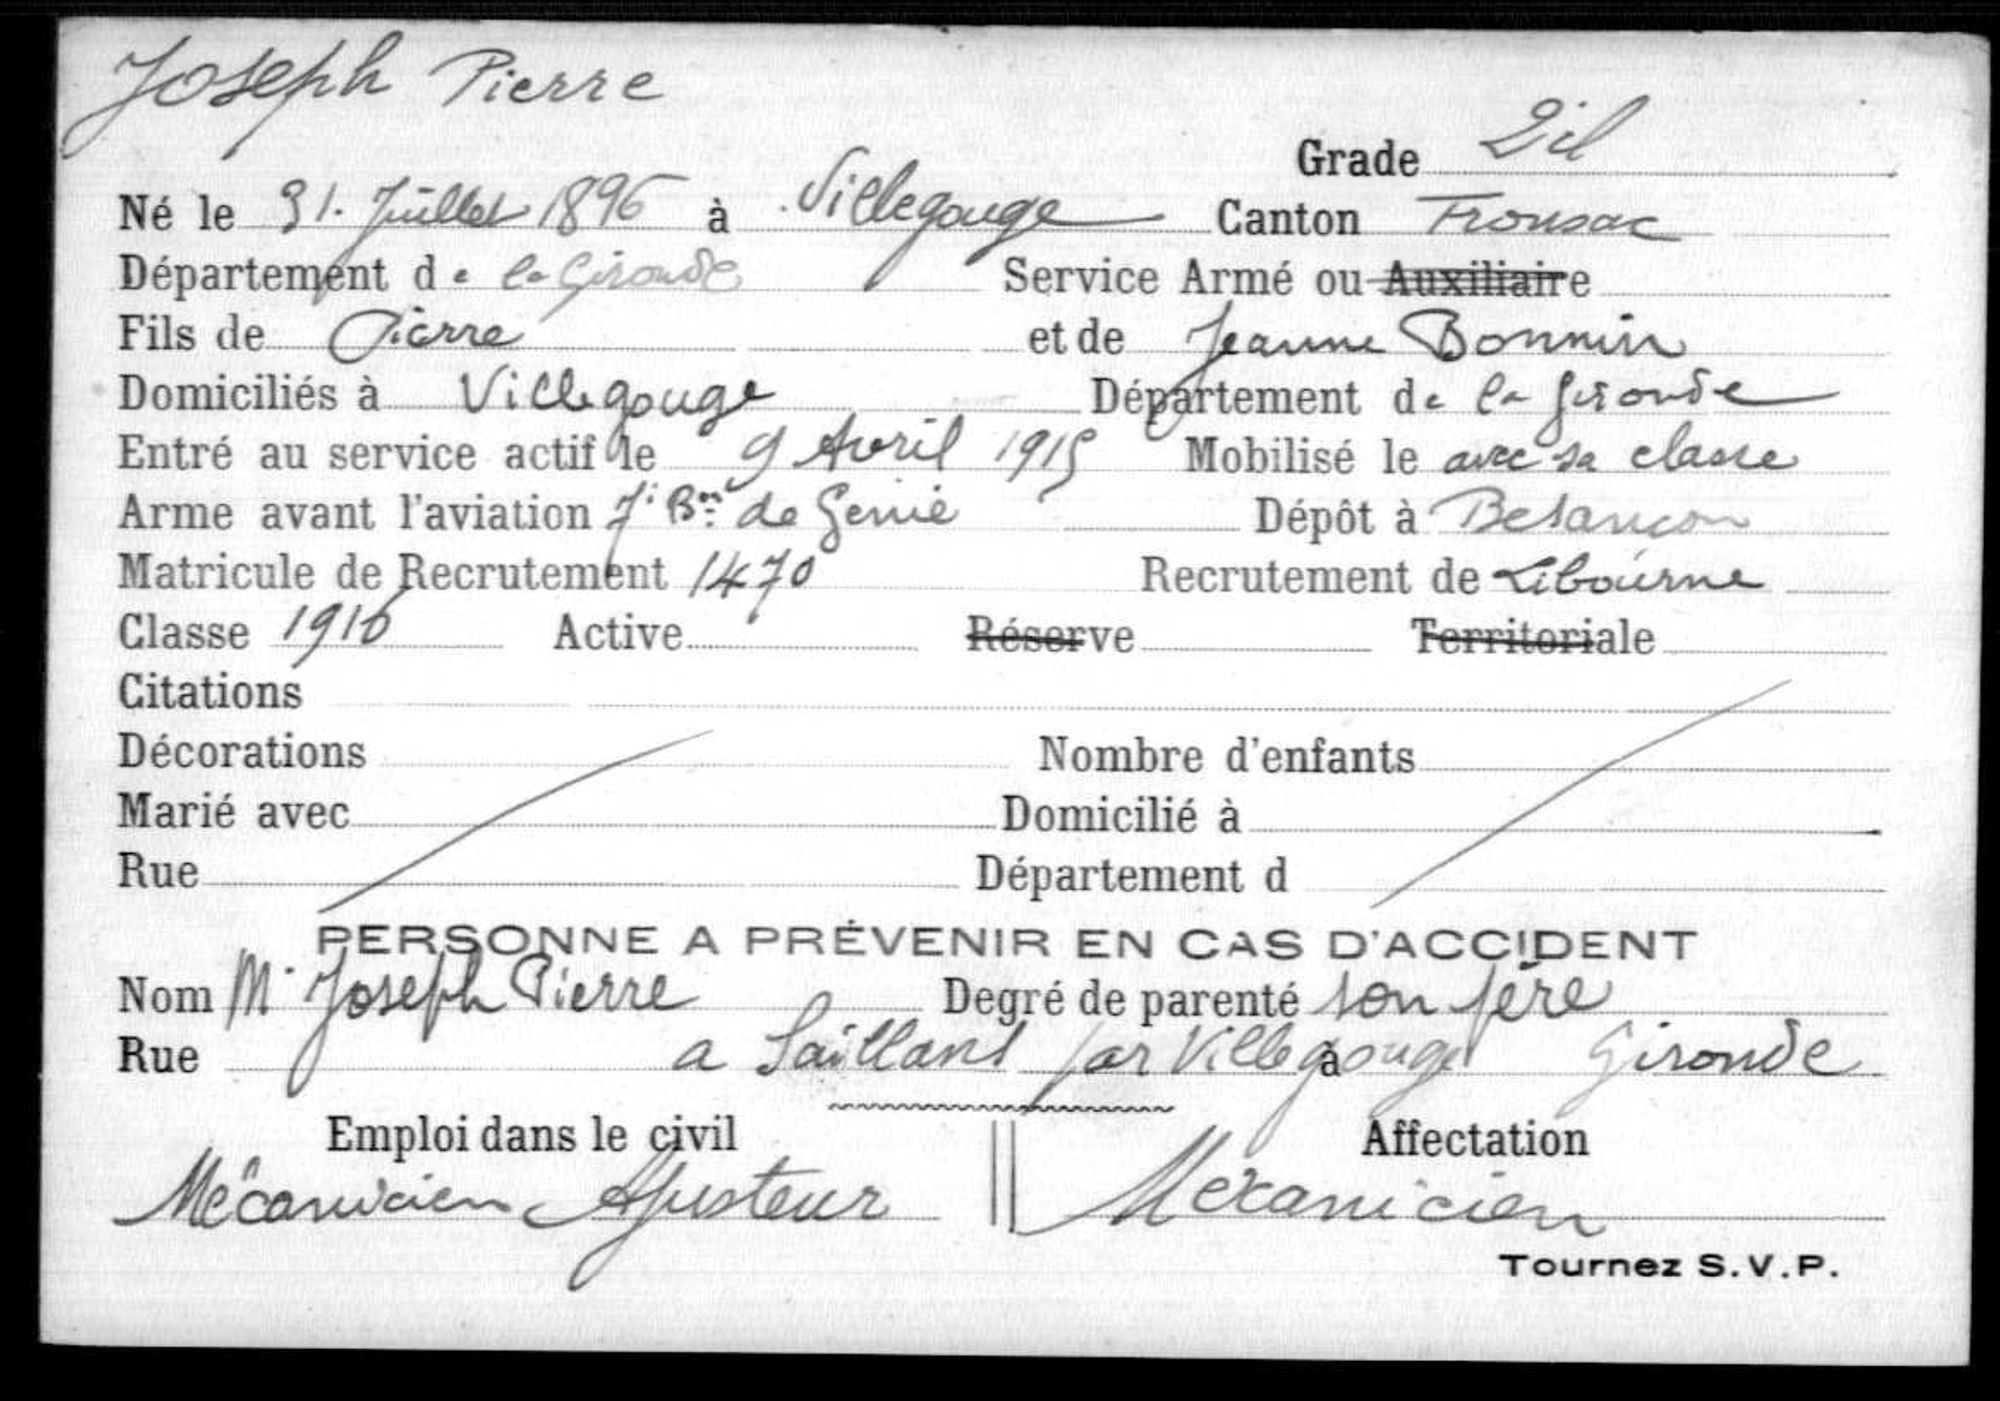 Joseph Pierre
Grade 2il
Né le 31. Juillet 1896 à Villegouge Canton Fronsac
Département de la Gironde Service Armé ou Auxiliaire
Fils de Pierre et de Jeanne Bonnin
Domiciliés à Villegouge Département de la Gironde
Entré au service actif le 9 Avril 1915 Mobilisé le avec sa classe
Arme avant l'aviation 7e Bon de Génie Dépôt à Besançon
Matricule de Recrutement 1470 Recrutement de Libourne
Classe 1916 Active Réserve Territoriale
Citations
Décorations Nombre d'enfants
Marié avec Domicilié à
Rue Département d
PERSONNE A PRÉVENIR EN CAS D'ACCIDENT
Nom Mr Joseph Pierre Degré de parenté son père
Rue a Saillans par Villegouge à Gironde
Emploi dans le civil Affectation
Mécanicien Ajusteur Mécanicien
Tournez S.V.P.